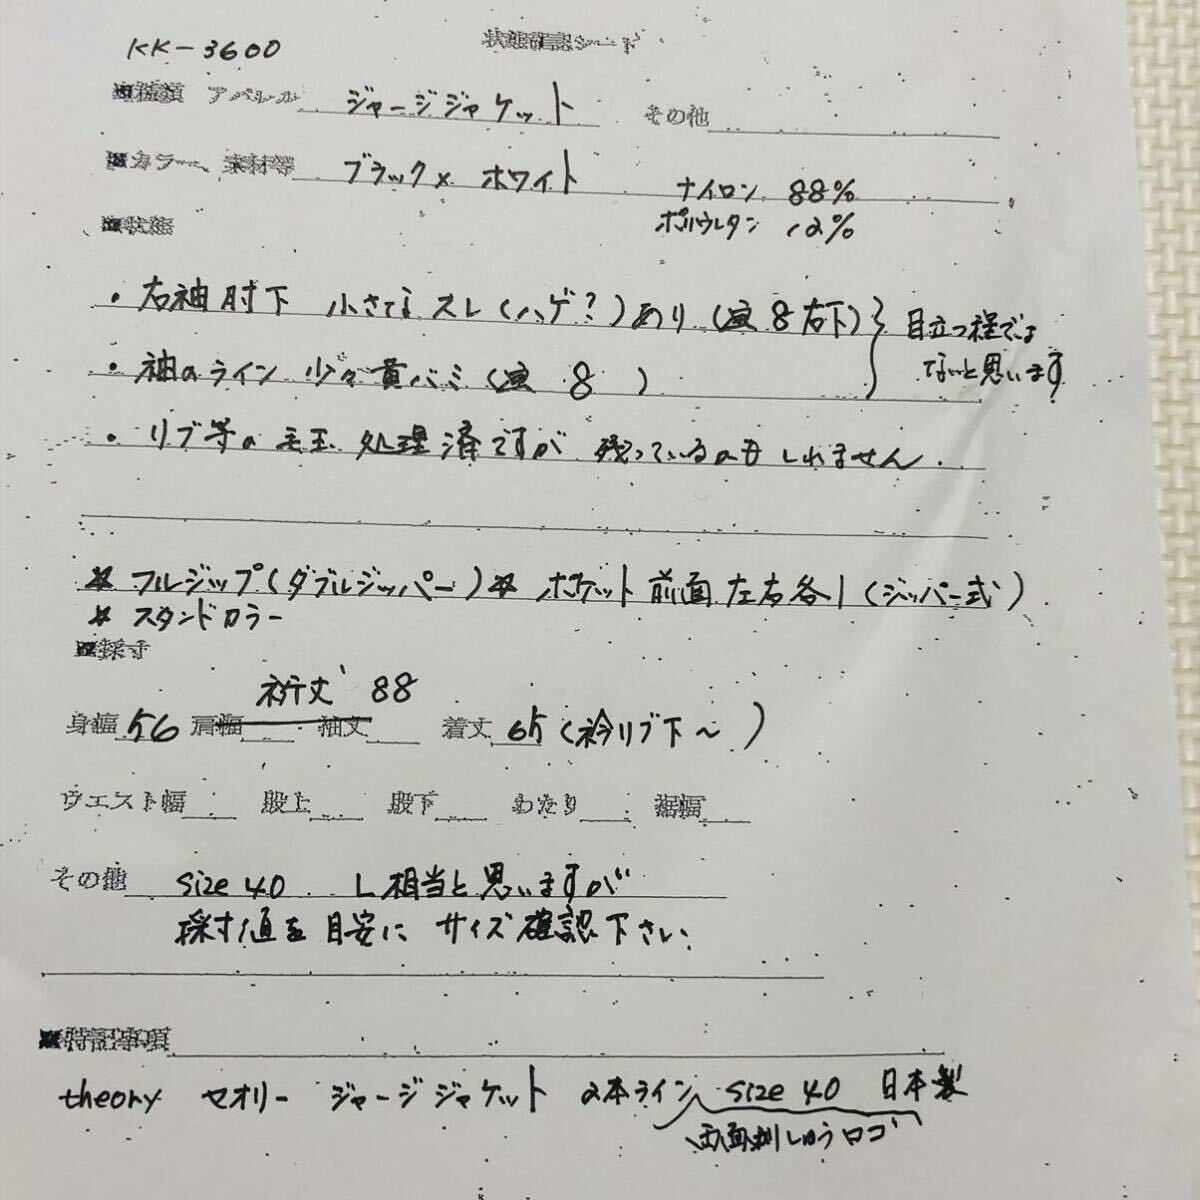 KK-3600
状態確認シート
■種類 アパレル ジャージジャケット その他
■カラー、素材等 ブラック× ホワイト ナイロン 88%
ポリウレタン 12%
■状態
・右袖肘下 小さなスレ(ハゲ?)あり(画8右下)
・袖のライン 少々黄バミ(画 8 )
目立つ程では
ないと思います
・リブ等の毛玉 処理済ですが 残っているかもしれません.
* フルジップ(ダブルジッパー) * ポケット前面左右各1(ジッパー式)
* スタンドカラー
■採寸
裄丈 88
身幅 56 肩幅 袖丈 着丈 65(衿リブ下~ )
ウエスト幅 股上 股下 わたり 裾幅
その他 size 40. L相当と思いますが
採寸値を目安に サイズ確認下さい.
■特記事項
theory セオリー ジャージジャケット 2本ライン size 40 日本製
刺しゅうロゴ